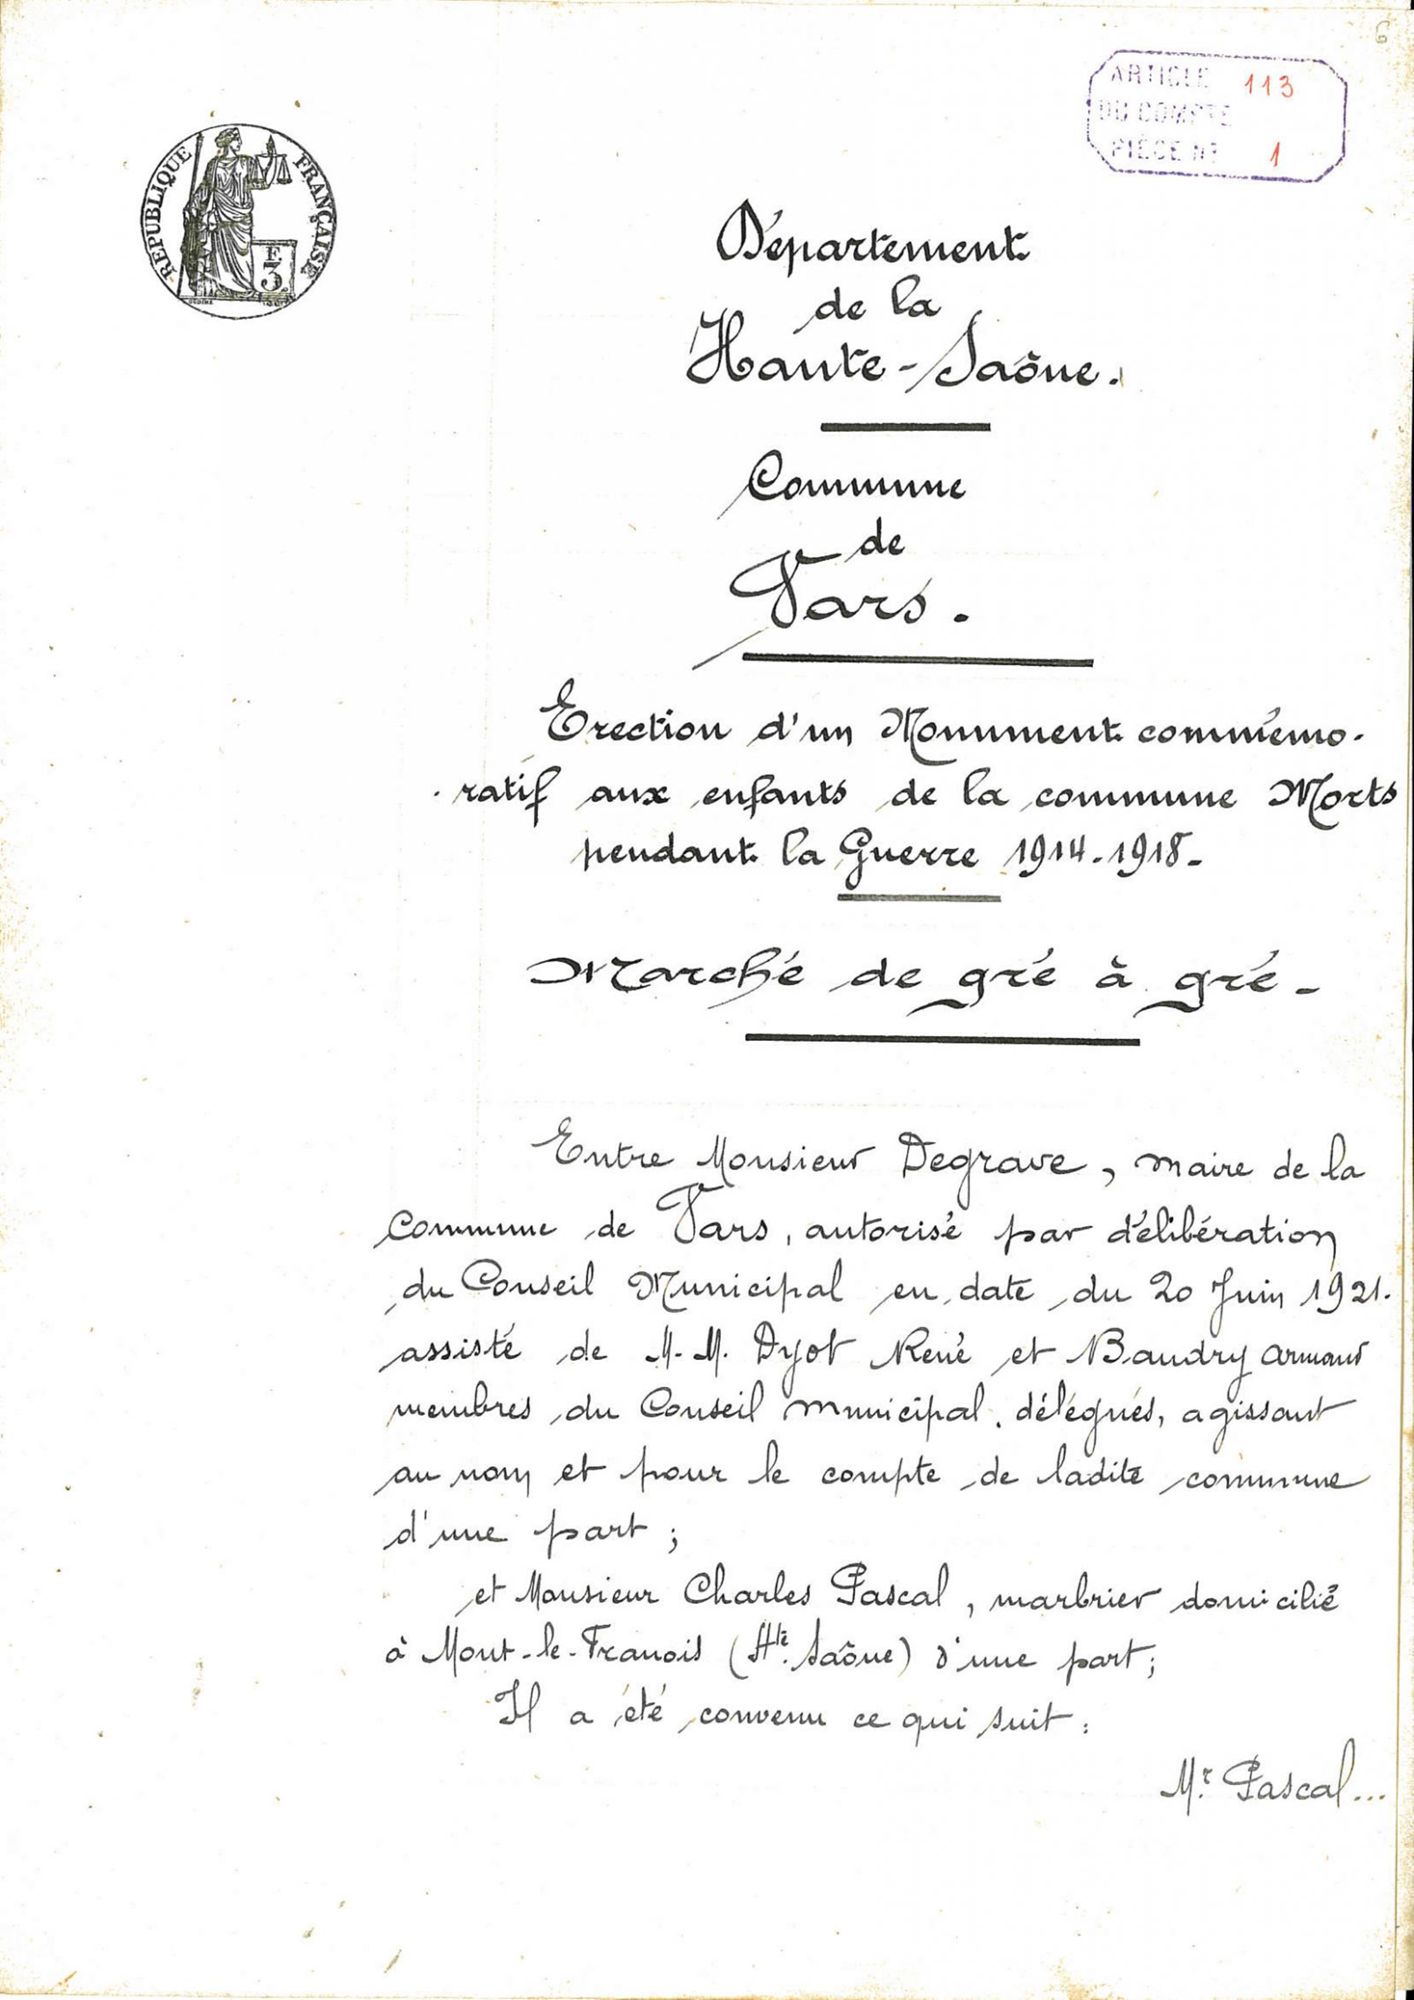 6
ARTICLE 113
DU COMPTE
PIÈCE N° 1
RÉPUBLIQUE FRANÇAISE
F
3
Département
de la
Haute-Saône.
Commune
de
Vars.
Erection d'un Monument commémo-
ratif aux enfants de la commune Morts
pendant la Guerre 1914-1918-
Marché de gré à gré-
Entre Monsieur Degrave, maire de la
Commune de Vars, autorisé par délibération
du Conseil Municipal en date du 20 Juin 1921.
assisté de M. M. Dyot René et Baudry Armand
membres du Conseil municipal, délégués, agissant
au nom et pour le compte de ladite commune
d'une part;
et Monsieur Charles Pascal, marbrier domicilié
à Mont-le-Franois (Hte Saône) d'une part;
Il a été convenu ce qui suit:
Mr Pascal...